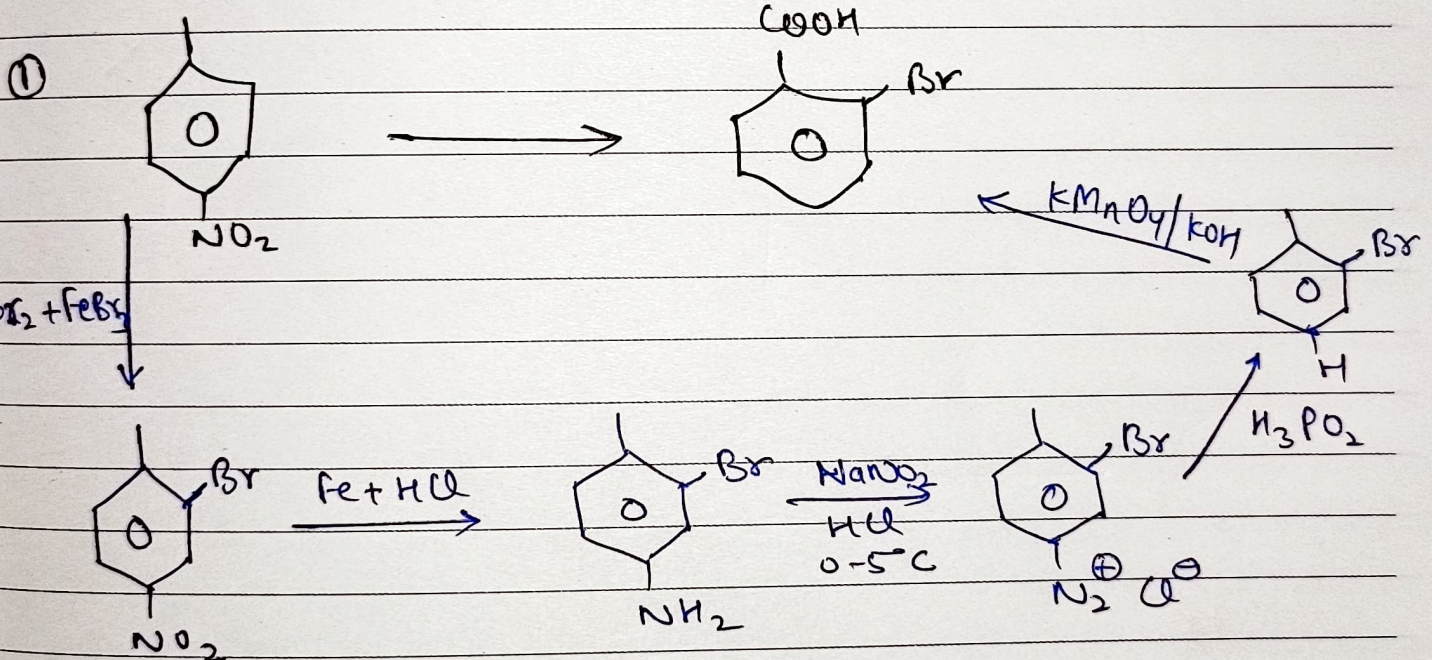 ①
NO₂
COOH
Br
KMnO₄/KOH
Br
H
r₂ + FeBr
H₃PO₂
Br
NO₂
Fe + HCl
Br
NH₂
NaNO₂
HCl
0-5°C
Br
N₂⊕ Cl⊖